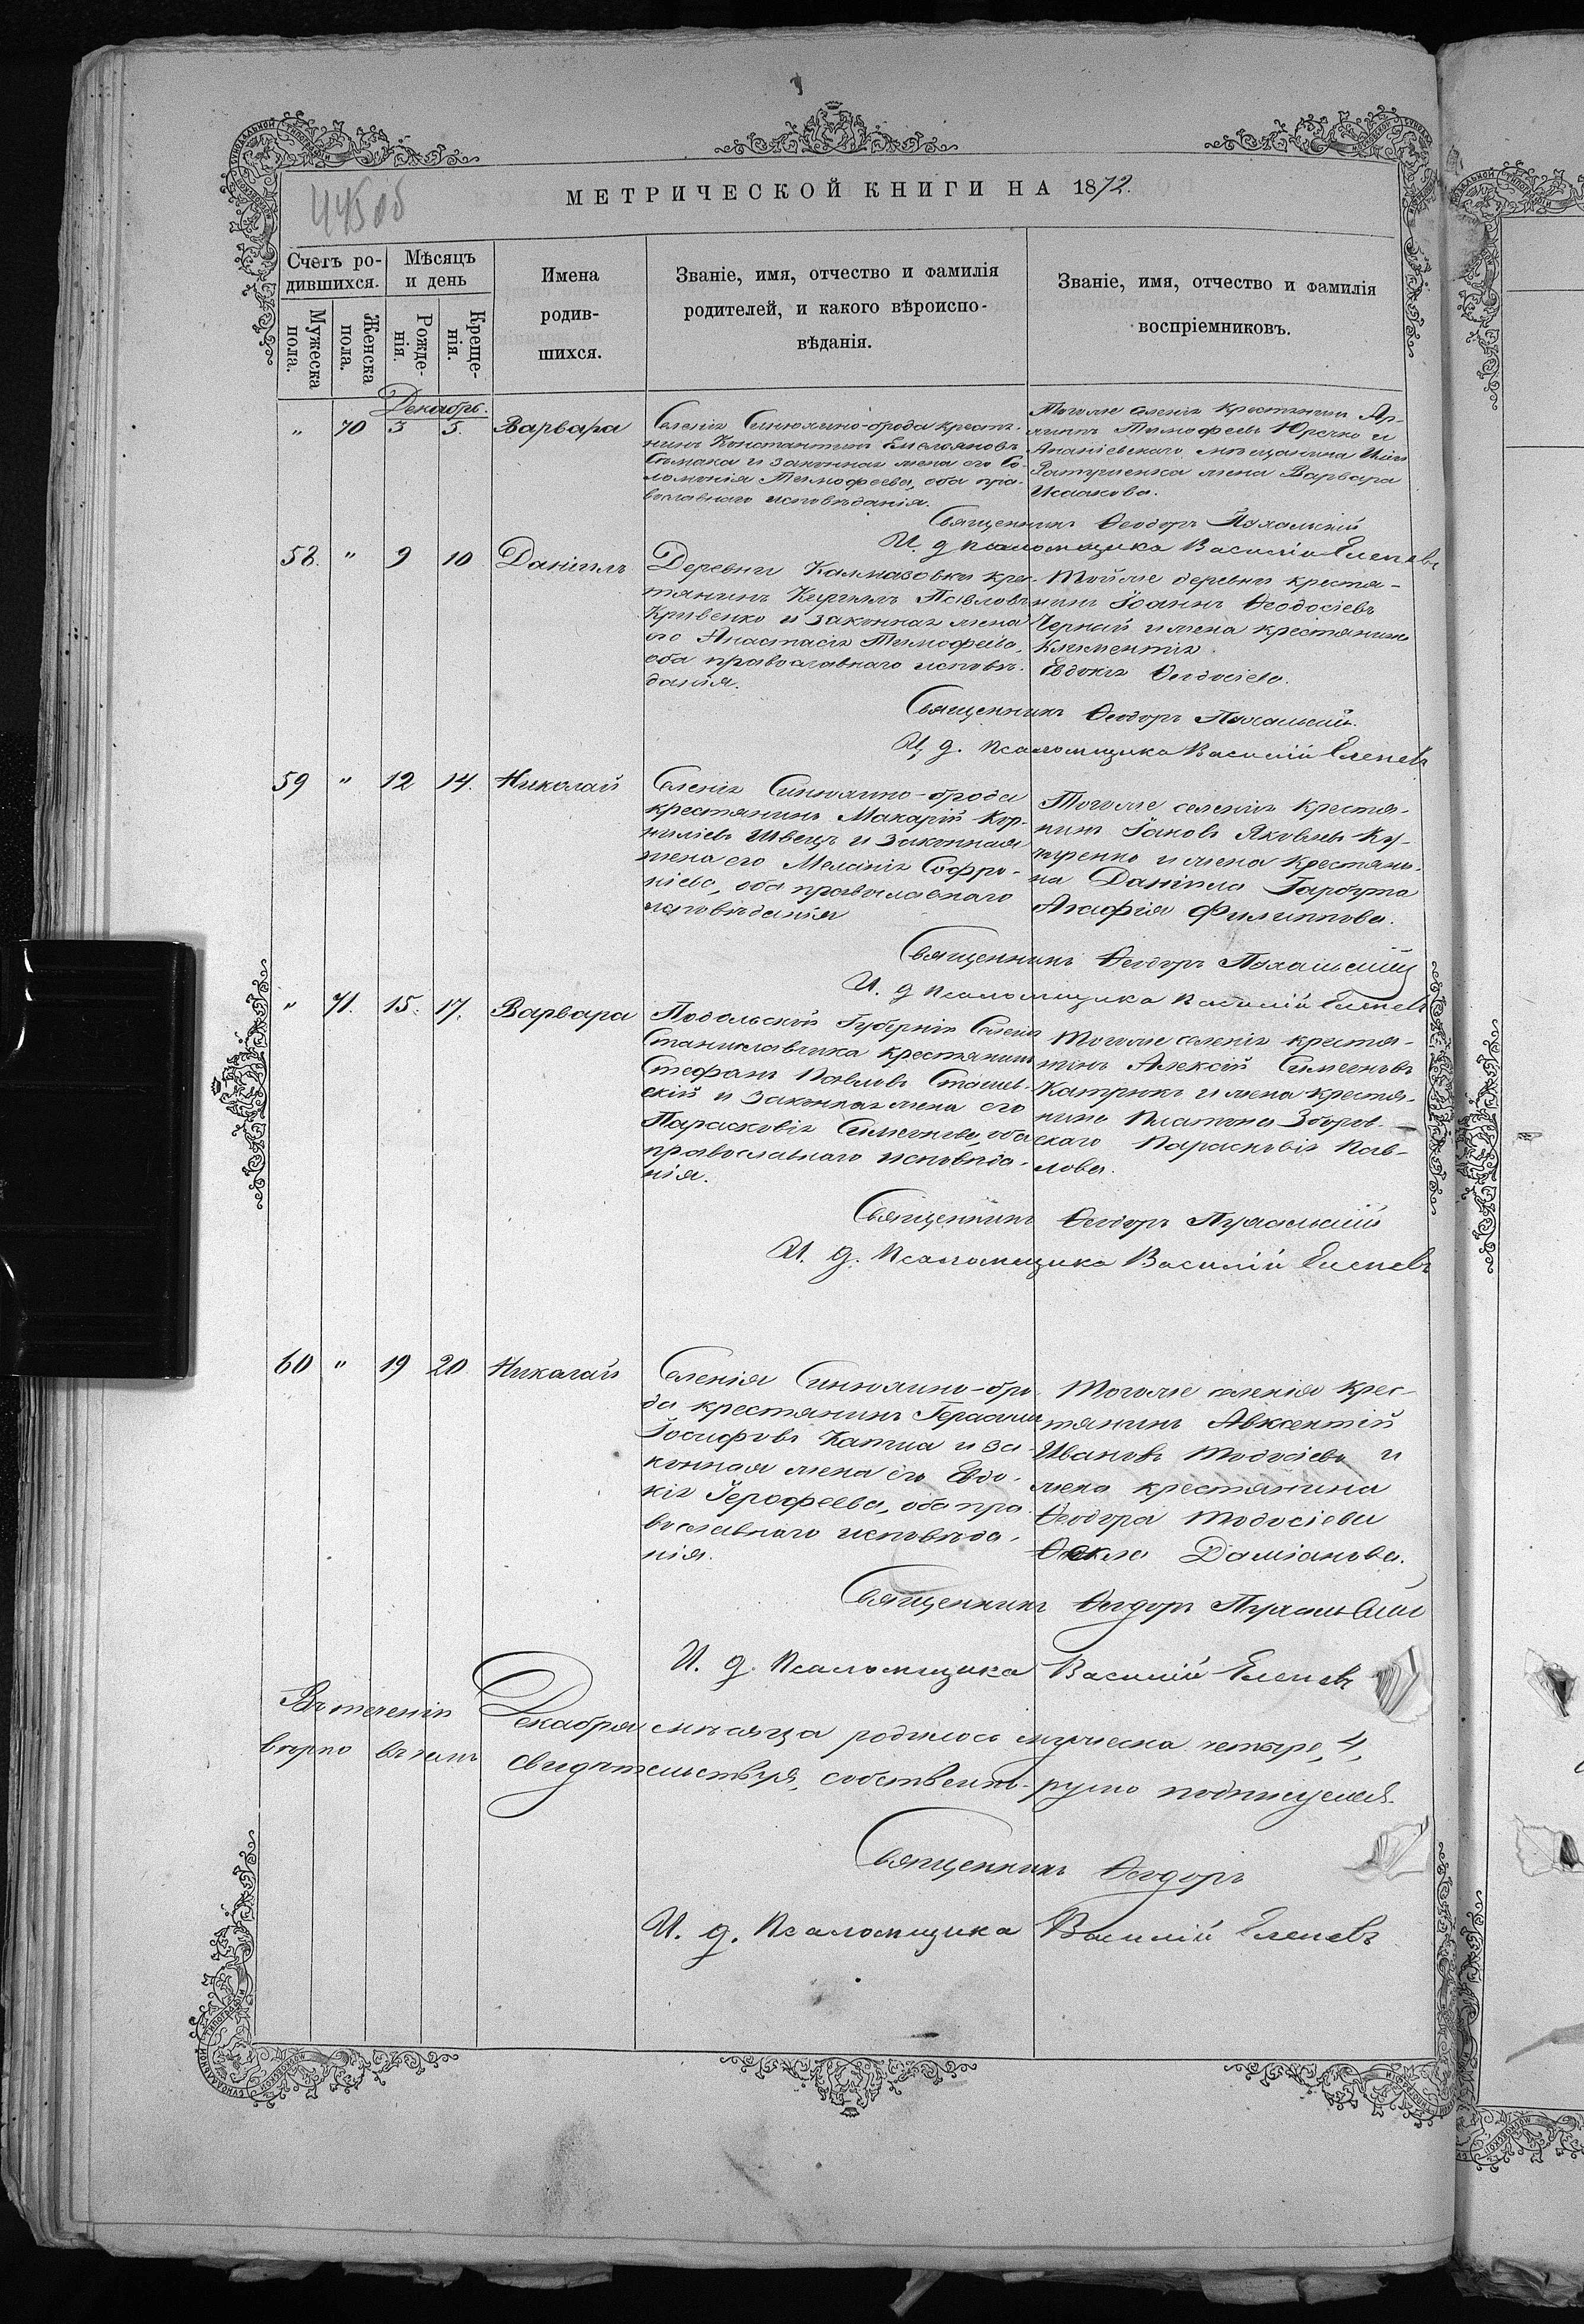 445об
МЕТРИЧЕСКОЙ КНИГИ НА 1872.
Счетъ ро-
дившихся.
Мѣсяцъ
и день
Имена
родив-
шихся.
Званіе, имя, отчество и фамилія
родителей, и какого вѣроиспо-
вѣданія.
Званіе, имя, отчество и фамилія
воспріемниковъ.
Мужеска
пола.
Женска
пола.
Рожде-
нія.
Креще-
нія.
Декабрь.
" 70 3 5. Варвара
Селенія Синюхино-брода крестя-
нинъ Константинъ Емеліановъ
и законная жена его Со-
ломонія Тимофеева, оба пра-
вославнаго исповѣданія.
Тогоже селенія крестьянинъ
Тимофеевъ Юрченко и
Ананіевскаго мѣщанина
жена Варвара
Исаакова.
Священникъ Ѳеодоръ
И. д. псаломщика Василій
58. " 9 10 Даніилъ
Деревни Калмазовки крес-
тянинъ Кириллъ Павловъ
Кривенко и законная жена
его Анастасія Тимофеева,
оба православнаго исповѣ-
данія.
Тойже деревни крестя-
нинъ Іоаннъ Ѳеодосіевъ
Черный и жена крестянина
Климентія
Евдокія Ѳеодосіева.
Священникъ Ѳеодоръ
И. д. псаломщика Василій
59 " 12 14. Николай
Селенія Синюхино-брода
крестянинъ Макарій Кор-
ниліевъ Швецъ и законная
жена его Меланія Софро-
ніева, оба православнаго
исповѣданія
Тогоже селенія крестя-
нинъ Іаковъ Яковлевъ Ку-
черенко и жена крестяни-
на Даніила Гарбуза
Агафія Филиппова.
Священникъ Ѳеодоръ
И. д. псаломщика Василій
" 71. 15. 17. Варвара
Подольской Губерніи Селенія
Станиславчика крестянинъ
Стефанъ Павловъ
и законная жена его
Параскевія Симеонова, оба
православнаго исповѣда-
нія.
Тогоже селенія крестя-
нинъ Алексій Симеоновъ
Катрюкъ и жена крестя-
нина Платона Зборов-
скаго Параскевія Пав-
лова.
Священникъ Ѳеодоръ
И. д. Псаломщика Василій
60 " 19 20 Николай
Селенія Синюхино-бро-
да крестянинъ Герасимъ
Іосифовъ и за-
конная жена его Евдо-
кія Іерофеева, оба пра-
вославнаго исповѣда-
нія.
Тогоже селенія крес-
тянинъ Авксентій
Ивановъ Тодосіевъ и
жена крестянина
Ѳеодора Тодосіева
Ѳекла Даміанова.
Священникъ Ѳеодоръ
И. д. Псаломщика Василій
Въ теченіи Декабря мѣсяца родилось мужеска четыре, 4,
вѣрно въ чемъ свидѣтельствуя, собственно-ручно подписуемся.
Священникъ Ѳеодоръ
И. д. Псаломщика Василій